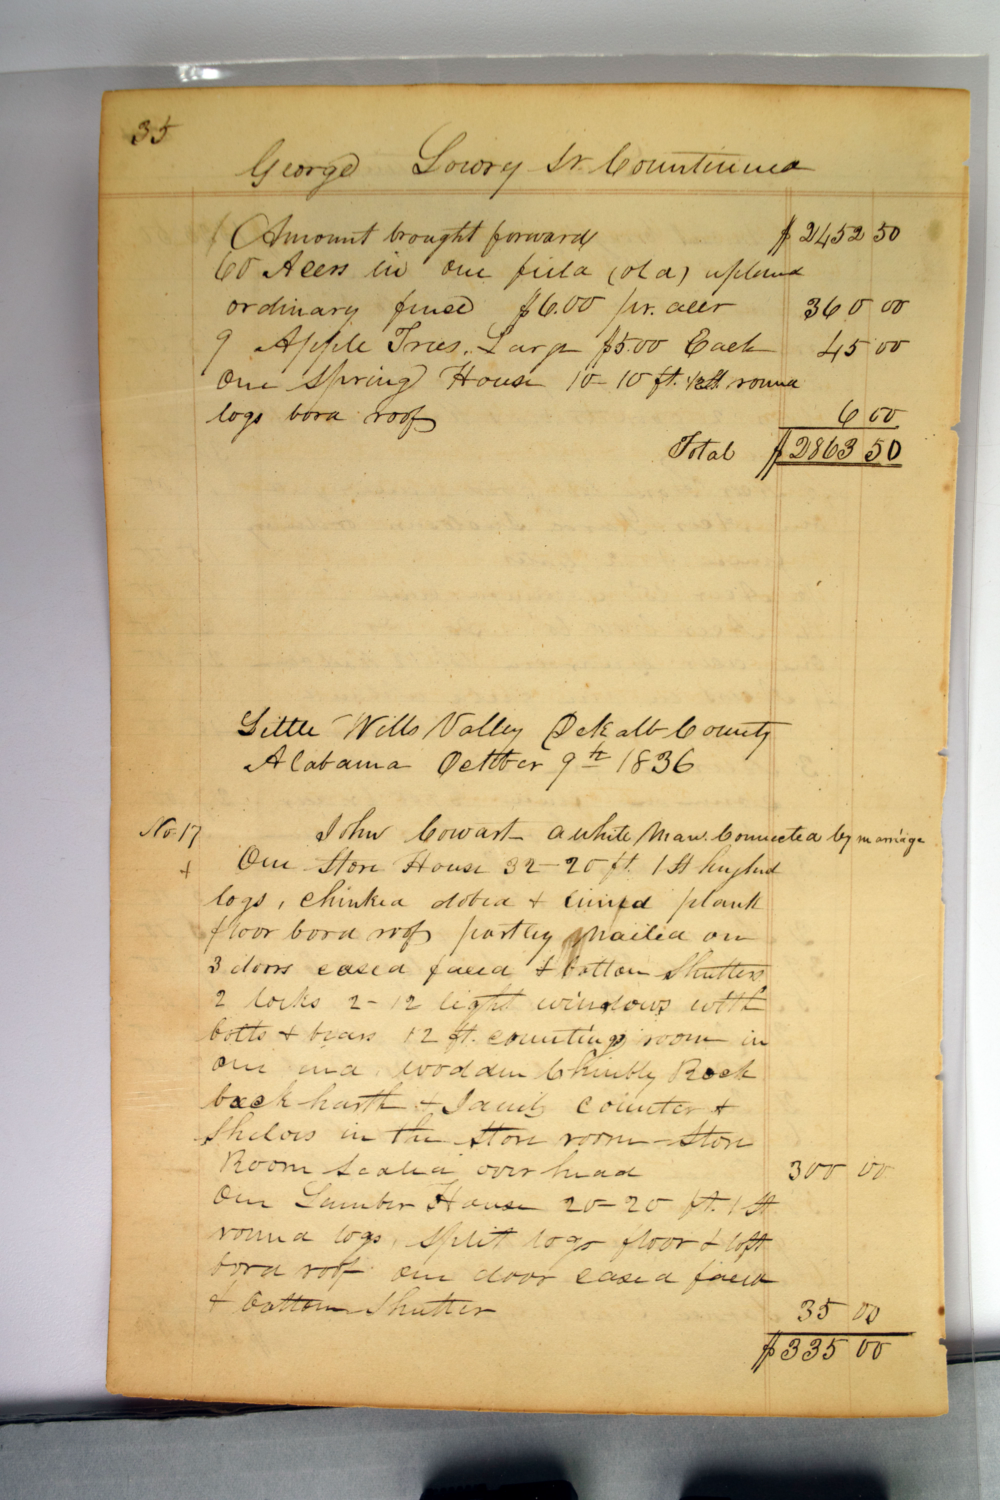 35
George Lowry Sr. Countinued
Amount brought forward $2452 50
60 Acers in one field (old) upland
ordinary fence $6.00 pr. acer 360 00
9 Apple Trees. Large $5.00 Each 45 00
One Spring House 10-10 ft. 1/2 St. round
logs bord roof 6 00
Total $2863 50
Little Wills Valley DeKalb County
Alabama October 9th 1836
No. 17 John Cowart a white Man. Connected by marriage
+ One Store House 32-20 ft. 1 St
logs, chinked dobed & lined plank
floor bord roof partley nailed on
3 doors cased faced & batton Shutters
2 locks 2-12 light windows with
bolts & bars 12 ft. counting room in
one end. wooden Chimbly Rock
back harth & counter &
Shelves in the Store room Store
Room Sealed over head 300 00
One Lumber House 20-20 ft. 1 St.
round logs. Split logs floor & loft
bord roof one door cased faced
& batton Shutter 35 00
$335 00